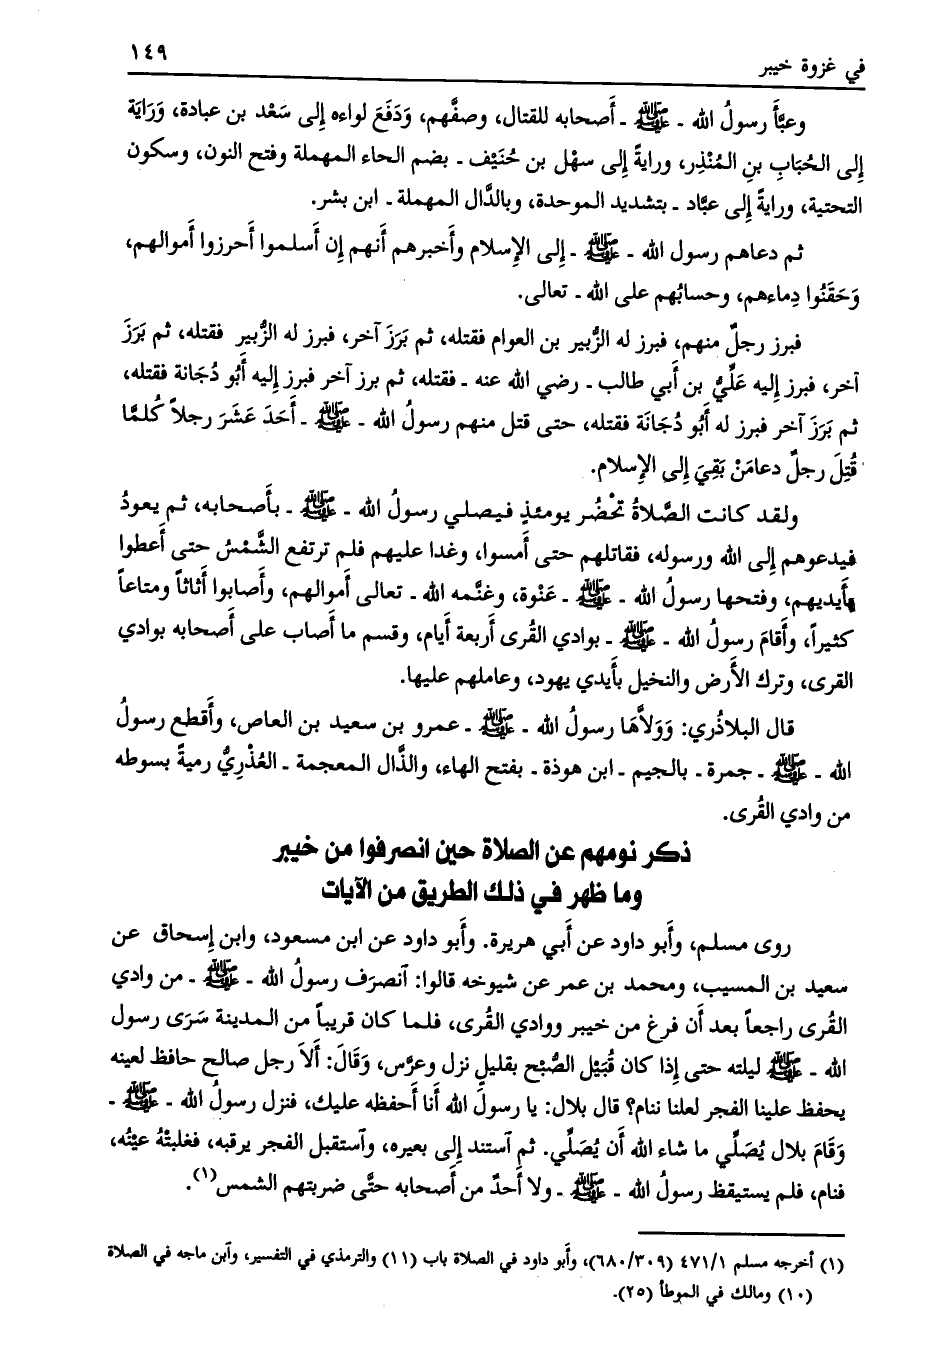 في غزوة خيبر ١٤٩
وعبَّأَ رسولُ الله ـ ﷺ ـ أَصحابه للقتال، وصفَّهم، وَدَفَعَ لواءه إِلى سَعْد بن عبادة، وَرَايَة
إِلى الحُبَابِ بنِ المُنْذِر، ورايةً إِلى سهْل بن حُنَيْف ـ بضم الحاء المهملة وفتح النون، وسكون
التحتية، ورايةً إِلى عبَّاد ـ بتشديد الموحدة، وبالدَّال المهملة ـ ابن بشر.
ثم دعاهم رسول الله ـ ﷺ ـ إِلى الإِسلام وأَخبرهم أَنهم إِن أَسلموا أَحرزوا أَموالهم،
وَحَقَنُوا دِماءهم، وحسابُهم على الله ـ تعالى.
فبرز رجلٌ منهم، فبرز له الزُّبير بن العوام فقتله، ثم بَرَزَ آخر، فبرز له الزُّبير فقتله، ثم بَرَزَ
آخر، فبرز إليه عَلِّيُّ بن أَبي طالب ـ رضي الله عنه ـ فقتله، ثم برز آخر فبرز إليه أَبُو دُجَانة فقتله،
ثم بَرَزَ آخر فبرز له أَبُو دُجَانَة فقتله، حتى قتل منهم رسولُ الله ـ ﷺ ـ أَحَدَ عَشَرَ رجلاً كُلمَّا
قُتِلَ رجلٌ دعامَنْ بَقِيَ إِلى الإِسلام.
ولقد كانت الصَّلاةُ تحْضُر يومئذٍ فيصلي رسولُ الله ـ ﷺ ـ بأَصحابه، ثم يعودُ
فيدعوهم إِلى الله ورسوله، فقاتلهم حتى أَمسوا، وغدا عليهم فلم ترتفع الشَّمْسُ حتى أَعطوا
بأَيديهم، وفتحها رسولُ الله ـ ﷺ ـ عَنْوة، وغنَّمه الله ـ تعالى أَموالهم، وأَصابوا أَثاثاً ومتاعاً
كثيراً، وأَقامَ رسولُ الله ـ ﷺ ـ بوادي القُرى أَربعة أَيام، وقسم ما أَصاب على أَصحابه بوادي
القرى، وترك الأَرض والنخيل بأَيدي يهود، وعاملهم عليها.
قال البلاذُري: وَوَلاَّهَا رسولُ الله ـ ﷺ ـ عمرو بن سعيد بن العاص، وأَقطع رسولُ
الله ـ ﷺ ـ جمرة ـ بالجيم ـ ابن هوذة ـ بفتح الهاء، والذَّال المعجمة ـ العُذْرِيُّ رميةً بسوطه
من وادي القُرى.
ذكر نومهم عن الصلاة حين انصرفوا من خيبر
وما ظهر في ذلك الطريق من الآيات
روى مسلم، وأَبو داود عن أَبي هريرة. وأَبو داود عن ابن مسعود، وابن إِسحاق عن
سعيد بن المسيب، ومحمد بن عمر عن شيوخه قالوا: آنصرَف رسولُ الله ـ ﷺ ـ من وادي
القُرى راجعاً بعد أَن فرغ من خيبر ووادي القُرى، فلما كان قريباً من المدينة سَرَى رسول
الله ـ ﷺ ليلته حتى إِذا كان قُبَيْل الصُّبْح بقليلٍ نزل وعرَّس، وَقَالَ: أَلاَ رجل صالح حافظ لعينه
يحفظ علينا الفجر لعلنا ننام؟ قال بلال: يا رسولَ الله أَنا أَحفظه عليك، فنزل رسولُ الله ـ ﷺ ـ
وَقَامَ بلال يُصَلِّي ما شاء الله أَن يُصَلِّي. ثم آستند إِلى بعيره، وآستقبل الفجر يرقبه، فغلبتْهُ عيْنُه،
فنام، فلم يستيقظ رسولُ الله ـ ﷺ ـ ولا أَحدٌ من أَصحابه حتَّى ضربتهم الشمس(١).
(١) أخرجه مسلم ٤٧١/١ (٦٨٠/٣٠٩)، وأَبو داود في الصلاة باب (١١) والترمذي في التفسير، وآبن ماجه في الصلاة
(١٠) ومالك في الموطأ (٢٥).